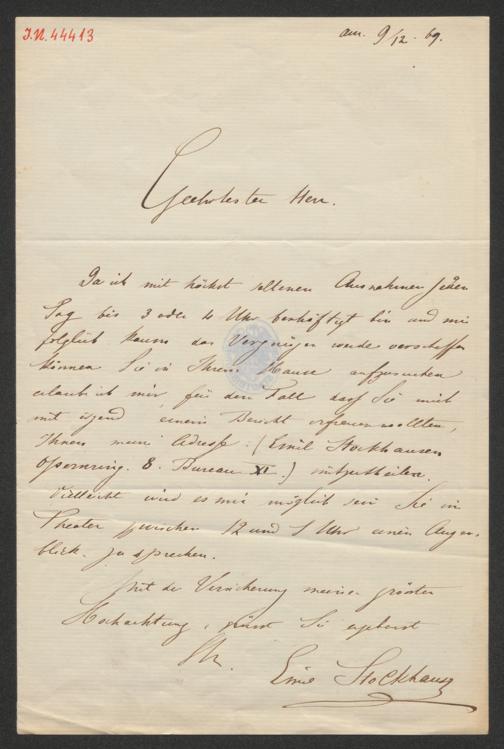 J.N. 44413
am. 9/12. 69.
Geehrtester Herr.
Da ich mit höchst seltenen Ausnahmen jeden
Tag bis 3 oder 4 Uhr beschäftigt bin und mir
folglich kaum das Vergnügen werde verschaffen
können Sie in Ihrem Hause aufzusuchen
erlaub ich mir, für den Fall daß Sie mich
mit irgend einem Bericht erfreuen wollten,
Ihnen meine Adresse: (Emil Stockhausen
Opernring. 8. Bureau XI.) mitzutheilen.
Vielleicht wird es mir möglich sein Sie im
Theater zwischen 12 und 1 Uhr einen Augen-
blick zu sprechen.
Mit der Versicherung meiner größten
Hochachtung, grüsst Sie ergebenst
Ihr.
Emil Stockhausen